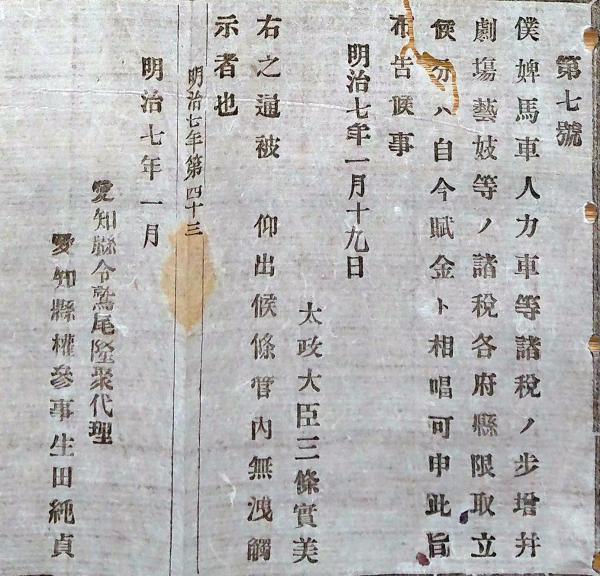 第七號
僕婢馬車人力車等諸税ノ步增幷
劇塲藝妓等ノ諸税各府縣限取立
候分ハ自今賦金ト相唱可申此旨
布告候事
明治七年一月十九日
太政大臣三條實美
右之通被 仰出候條管內無洩觸
示者也
明治七年第四十三
明治七年一月
愛知縣令鷲尾隆聚代理
愛知縣權參事生田純貞